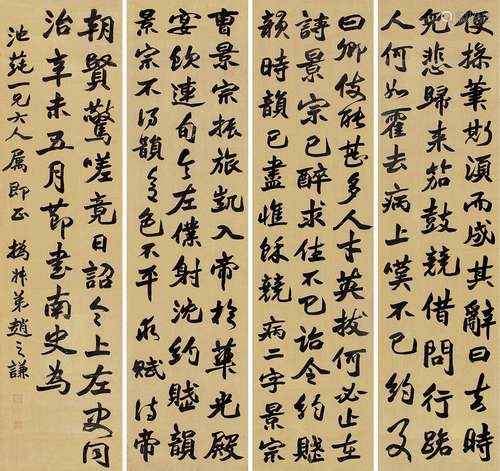 曹景宗振旅凱入帝於華光殿
宴飲連句令左僕射沈約賦韻
景宗不得韻意色不平求賦詩帝
曰卿伎能甚多人才英拔何必止在
詩景宗已醉求作不已詔令約賦
韻時韻已盡惟餘競病二字景宗
便操筆斯須而成其辭曰去時
兒悲歸來笳鼓競借問行路
人何如霍去病上嘆不已約及
朝賢驚嗟竟日詔令上左史同
治辛未五月節書南史為
池蓴一兄大人属即正 撝叔弟趙之謙